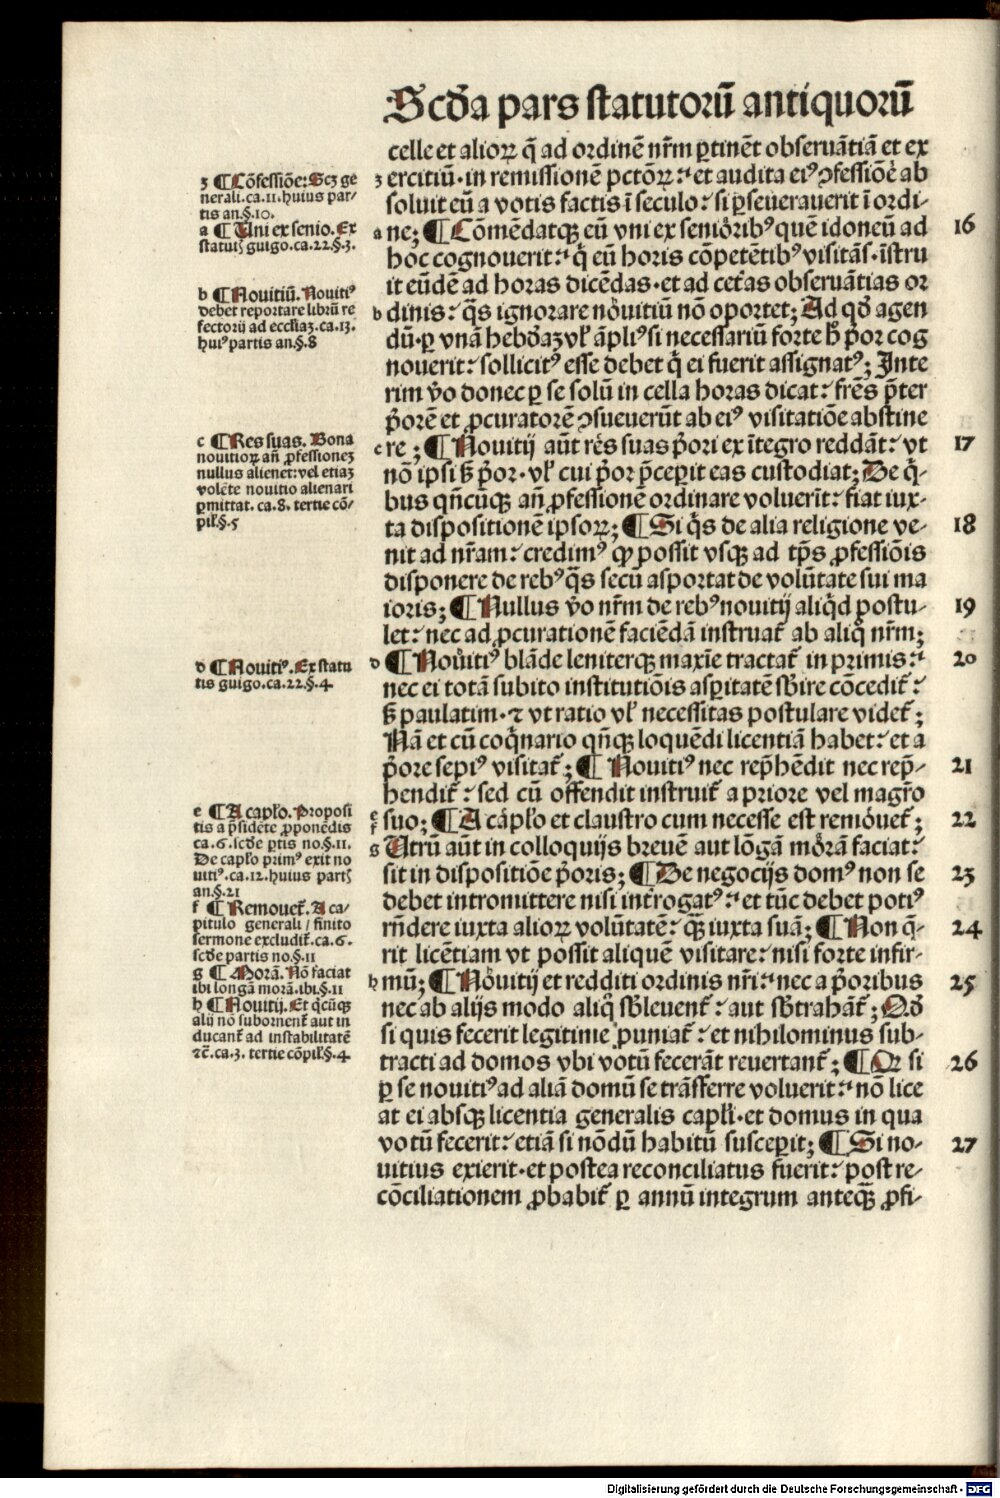 Scđa pars statutorū antiquorū
celle et alioꝝ q̄ ad ordinē nr̄m ꝑtinēt obseruātiā et ex
ercitiū·in remissionē pctōꝝ: et audita eiꝰ ꝯfessiōe ab
soluit eū a votis factis ī seculo: si ꝑseuerauerit ī ordi-
ne; ¶ Cōmēdatqꝫ eū vni ex seniōribꝰ quē idoneū ad
hoc cognouerit: q̇ eū horis cōpetētibꝰ visitās·īstru
it eūdē ad horas dicēdas·et ad cet̄as obseruātias or
dinis: q̄s ignorare nouitiū nō oportet; Ad qđ agen
dū·ꝑ vnā hebđaꝫ vł āpliꝰ si necessariū forte ħ p̄or cog
nouerit: sollicitꝰ esse debet q̇ ei fuerit assignatꝰ; Inte
rim v̄o donec ꝑ se solū in cella horas dicat: fr̄es p̄ter
p̄orē et ꝓcuratorē ꝯsueuerūt ab eiꝰ visitatiōe abstine
re; ¶ Nouitij aūt res suas p̄ori ex ītegro reddāt: vt
nō ipsi ꝫ p̄or·vł cui p̄or p̄ceꝑit eas custodiat; De q̇-
bus qn̄cūqꝫ an̄ ꝓfessionē ordinare voluerīt: fiat iux-
ta dispositionē ipsoꝝ; ¶ Si q̇s de alia religione ve-
nit ad nr̄am: credimꝰ ꝙ possit vsqꝫ ad tp̄s ꝓfessiōis
disponere de rebꝰ q̄s secū asportat de volūtate sui ma
ioris; ¶ Nullus v̄o nr̄m de rebꝰ nouitij aliq̇d postu-
let: nec ad ꝓcurationē faciēdā instruat̄ ab aliq̇ nr̄m;
¶ Nouitiꝰ blāde leniterqꝫ maxīe tractat̄ in primis:
nec ei totā subito institutiōis asꝑitatē sb̄ire cōcedit̄:
ꝫ paulatim·⁊ vt ratio vł necessitas postulare videt̄;
Nā et cū coq̇nario qn̄qꝫ loquēdi licentiā habet: et a
p̄ore sepiꝰ visitat̄; ¶ Nouitiꝰ nec rep̄hēdit nec rep̄-
hendit̄: sed cū offendit instruit̄ a priore vel magr̄o
suo; ¶ A capł̄o et claustro cum necesse est remouet̄;
Utrū aūt in colloquijs breuē aut lōgā morā faciat:
sit in dispositiōe p̄oris; ¶ De negocijs domꝰ non se
debet intromittere nisi int̄rogatꝰ: et tūc debet potiꝰ
rn̄dere iuxta alioꝝ volūtatē: qꝫ̄ iuxta suā; ¶ Non q̄-
rit licētiam vt possit aliquē visitare: nisi forte infir-
mū; ¶ Nouitij et redditi ordinis nr̄i: nec a p̄oribus
nec ab alijs modo aliq̇ sb̄leuent̄: aut sb̄trahāt̄; Qđ
si quis fecerit legitime puniat̄: et nihilominus sub-
tracti ad domos vbi votū fecerāt reuertant̄; ¶ Qr si
ꝑ se nouitiꝰ ad aliā domū se trāsferre voluerit: nō lice
at ei absqꝫ licentia generalis capłi·et domus in qua
votū fecerit: etiā si nōdū habitū susceꝑit; ¶ Si no-
uitius exierit·et postea reconciliatus fuerit: post re-
cōciliationem ꝓbabit̄ ꝑ annū integrum anteqꝫ̄ ꝓfi-
16
17
18
19
20
21
22
23
24
25
26
27
z ¶ Cōfessiōe: Scꝫ ge
nerali.ca.11.huius par-
tis an.§.10.
a ¶ Uni ex senio. Ex
statutꝭ guigo.ca.22.§.3.
b ¶ Nouitiū. Nouitiꝰ
debet reportare librū re
fectorij ad eccł̄iaꝫ.ca.13.
huiꝰ partis an.§.8
c ¶ Res suas. Bona
nouitioꝝ an̄ ꝓfessioneꝫ
nullus alienet: vel etiaꝫ
volēte nouitio alienari
ꝑmittat. ca.8. tertie cō-
pił.§.5
d ¶ Nouitiꝰ. Ex statu
tis guigo.ca.22.§.4.
e ¶ A capł̄o. Propositi
tis a p̄sidēte ꝓponēdis
ca.6.scđe ꝑtis no.§.11.
De capł̄o primꝰ exit no
uitiꝰ.ca.12.huius partꝭ
an.§.21
f ¶ Remouet̄. A ca-
pitulo generali / finito
sermone excludit̄.ca.6.
scđe partis no.§.11
g ¶ Morā. Nō faciat
ibi longā morā.ibi.§.11
h ¶ Nouitij. Et q̇cūqꝫ
alij nō subornent̄ aut in
ducant̄ ad instabilitatē
⁊c̄.ca.3. tertie cōpił.§.4.
Digitalisierung gefördert durch die Deutsche Forschungsgemeinschaft - DFG